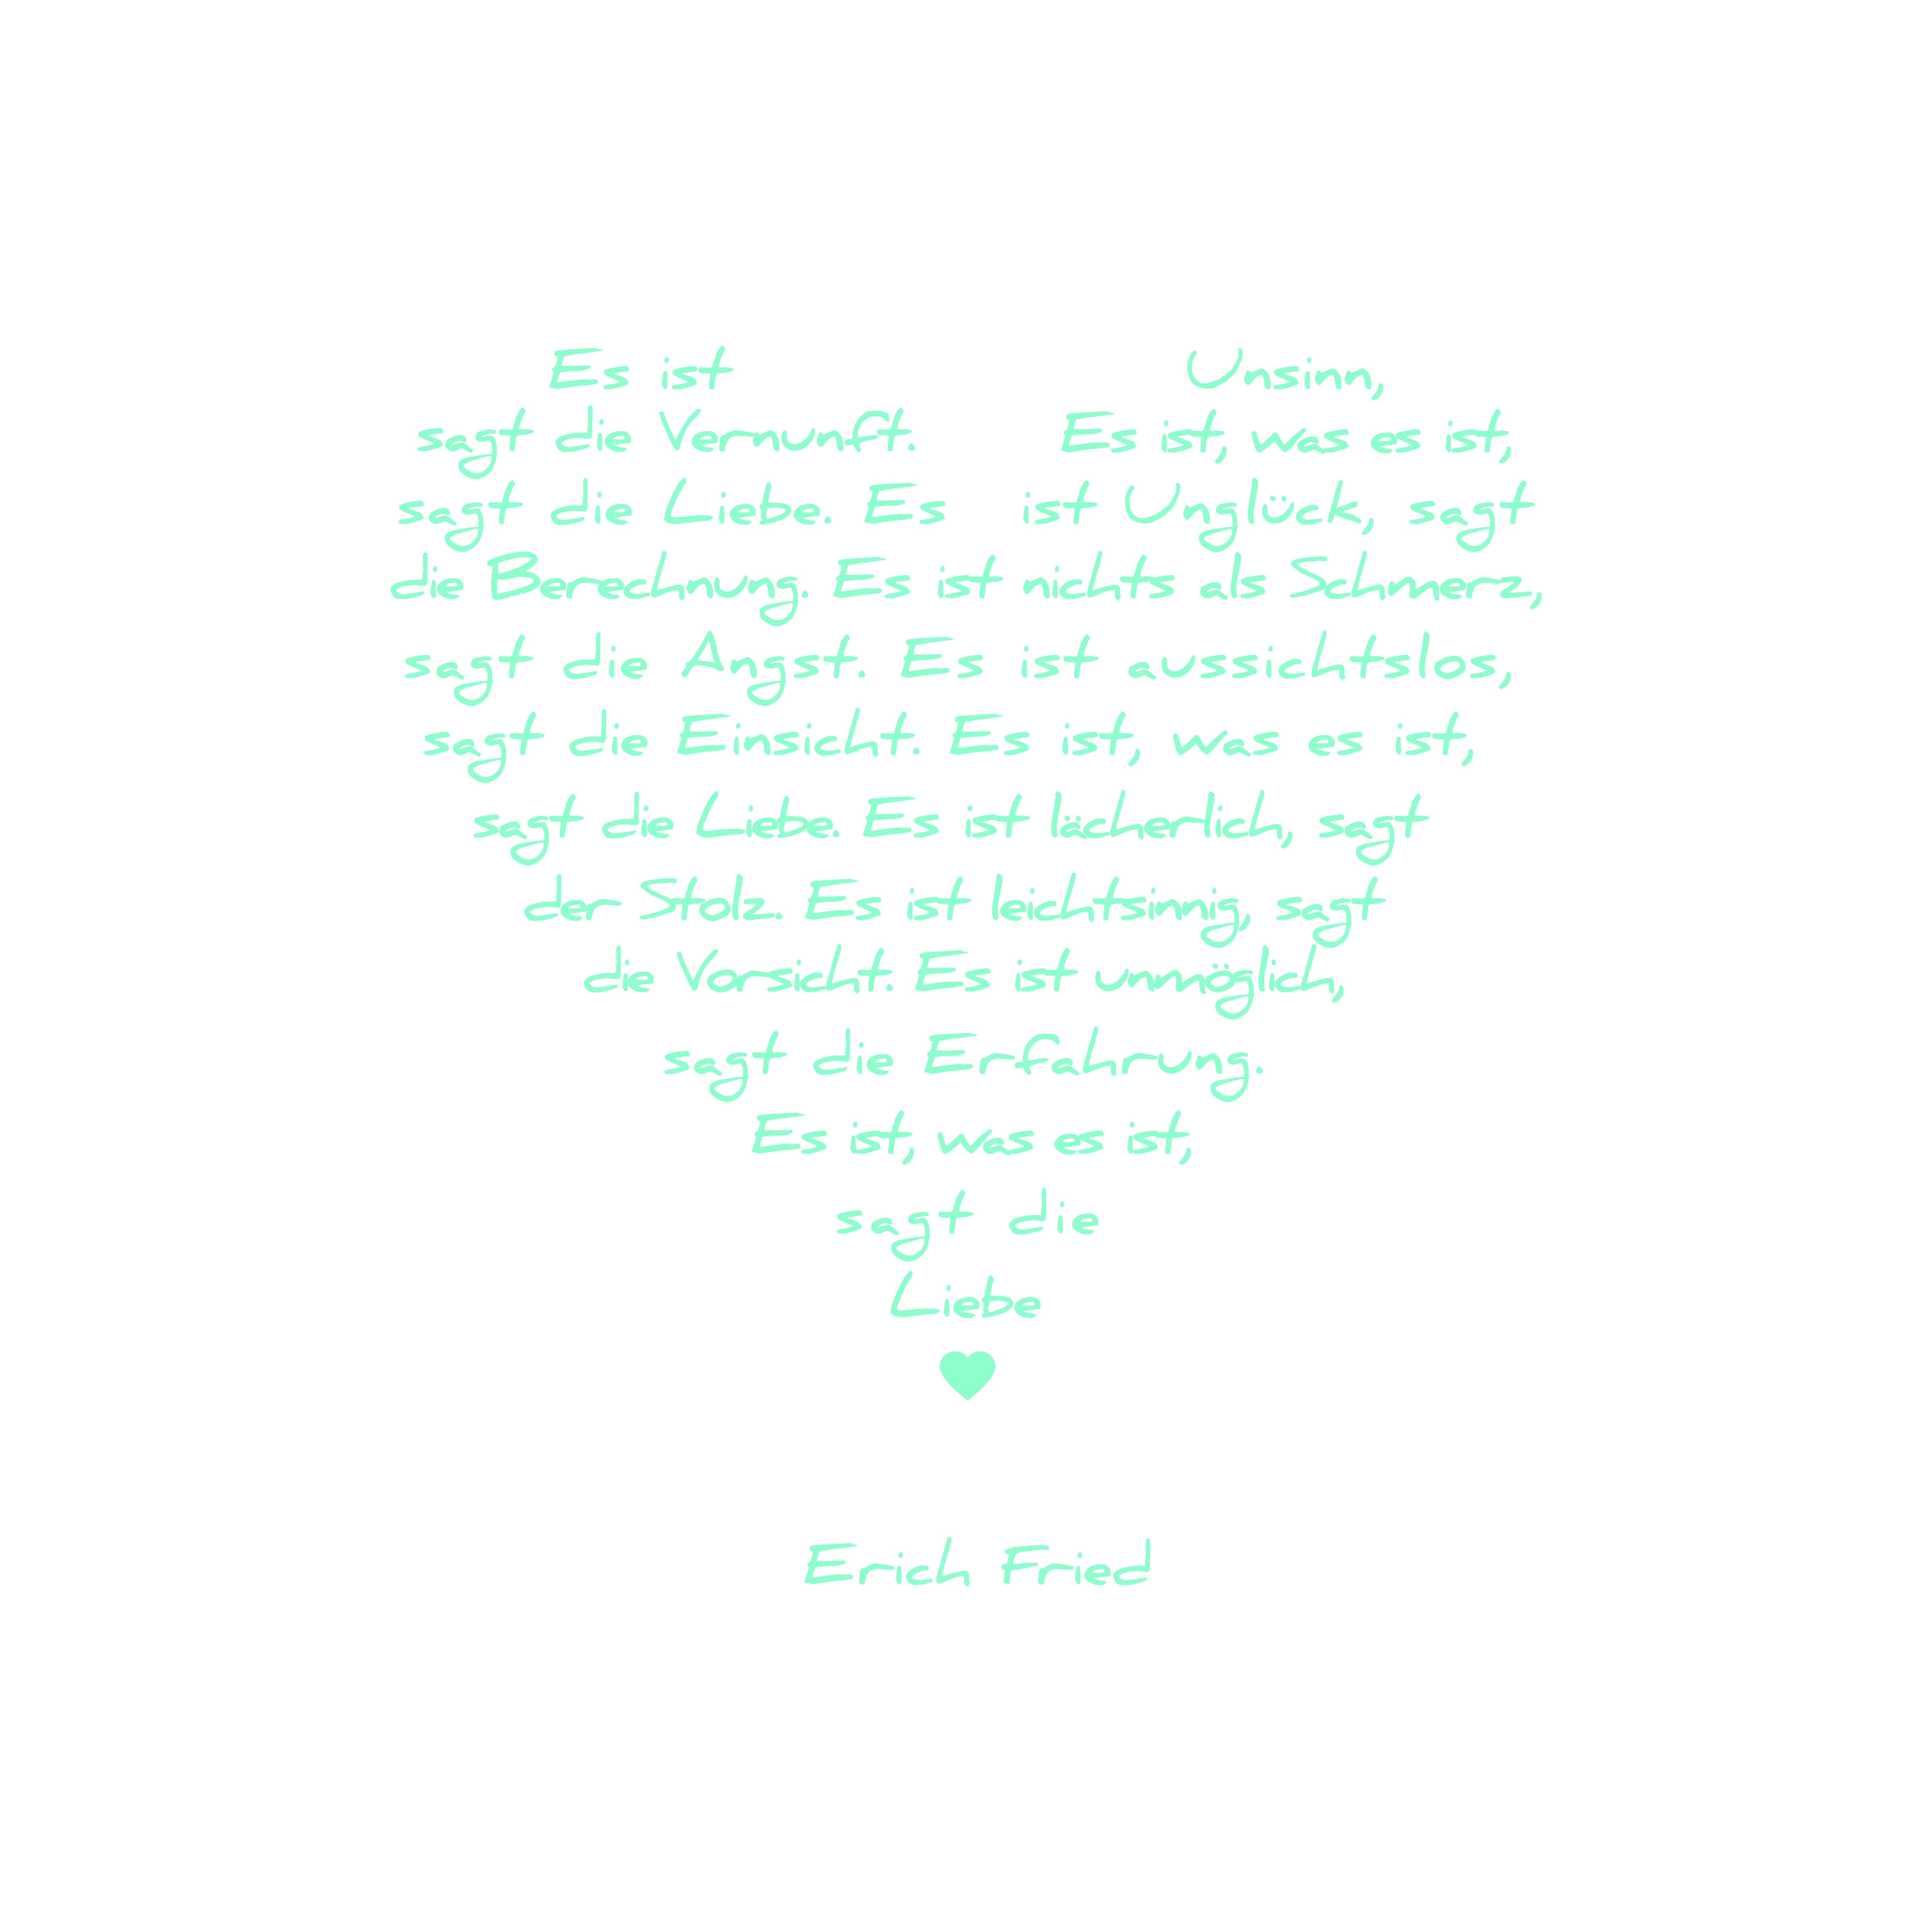 Es ist Unsinn,
sagt die Vernunft. Es ist, was es ist,
sagt die Liebe. Es ist Unglück, sagt
die Berrechnung. Es ist nichts als Schmerz,
sagt die Angst. Es ist aussichtslos,
sagt die Einsicht. Es ist, was es ist,
sagt die Liebe. Es ist lächerlich, sagt
der Stolz. Es ist leichtsinnig, sagt
die Vorsicht. Es ist unmöglich,
sagt die Erfahrung.
Es ist, was es ist,
sagt die
Liebe
Erich Fried